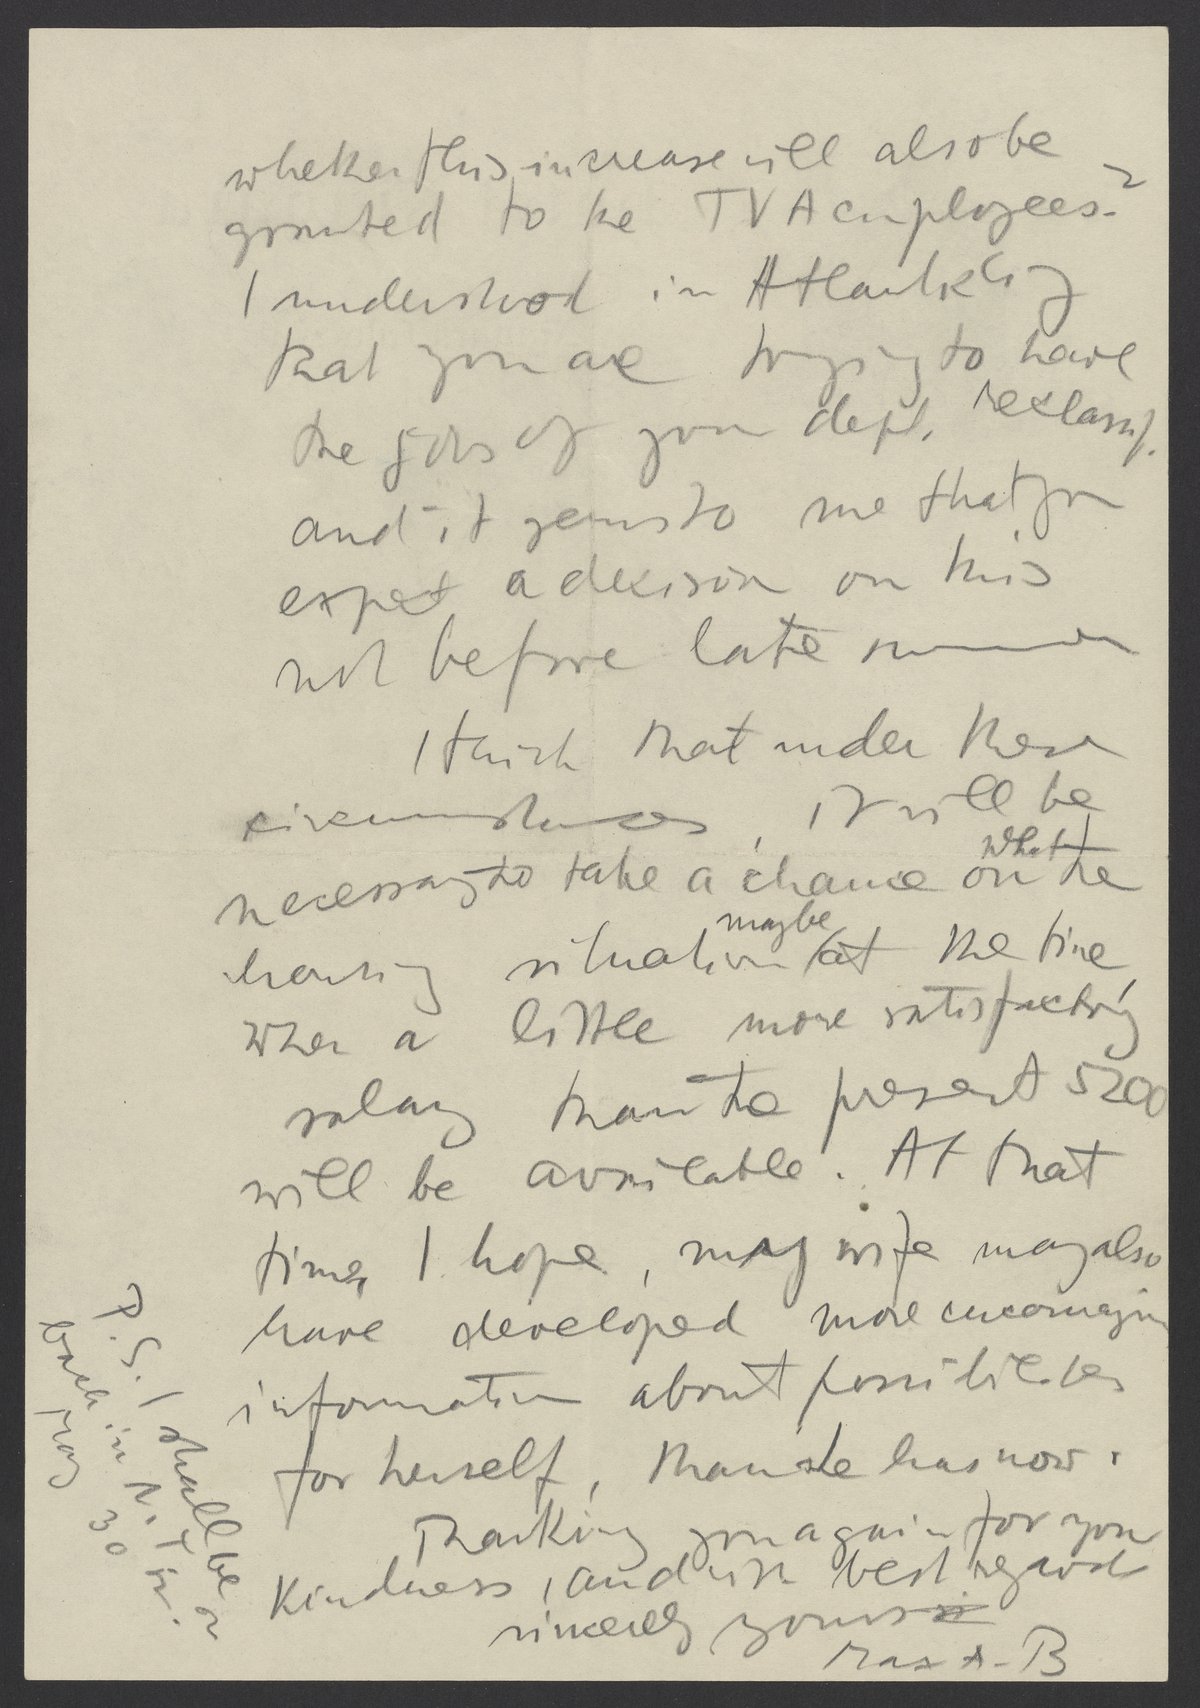 whether this increase will also be
granted to the TVA employees?
I understood in Atlantic City
that you are trying to have
the jobs of your dept. reclassif.
and it seems to me that you
expect a decision on this
not before late summer
I think that under these
circumstances, it will be
necessary to take a chance on what the
housing situation maybe at the time,
when a little more satisfactory
salary than the present 5200
will be available. At that
time, I hope, my wife may also
have developed more encouraging
information about possibilities
for herself, than she has now.
Thanking you again for your
kindness, and with best regards
sincerely yours
Max A. B
P.S. I shall be
back in N.Y. on
May 30